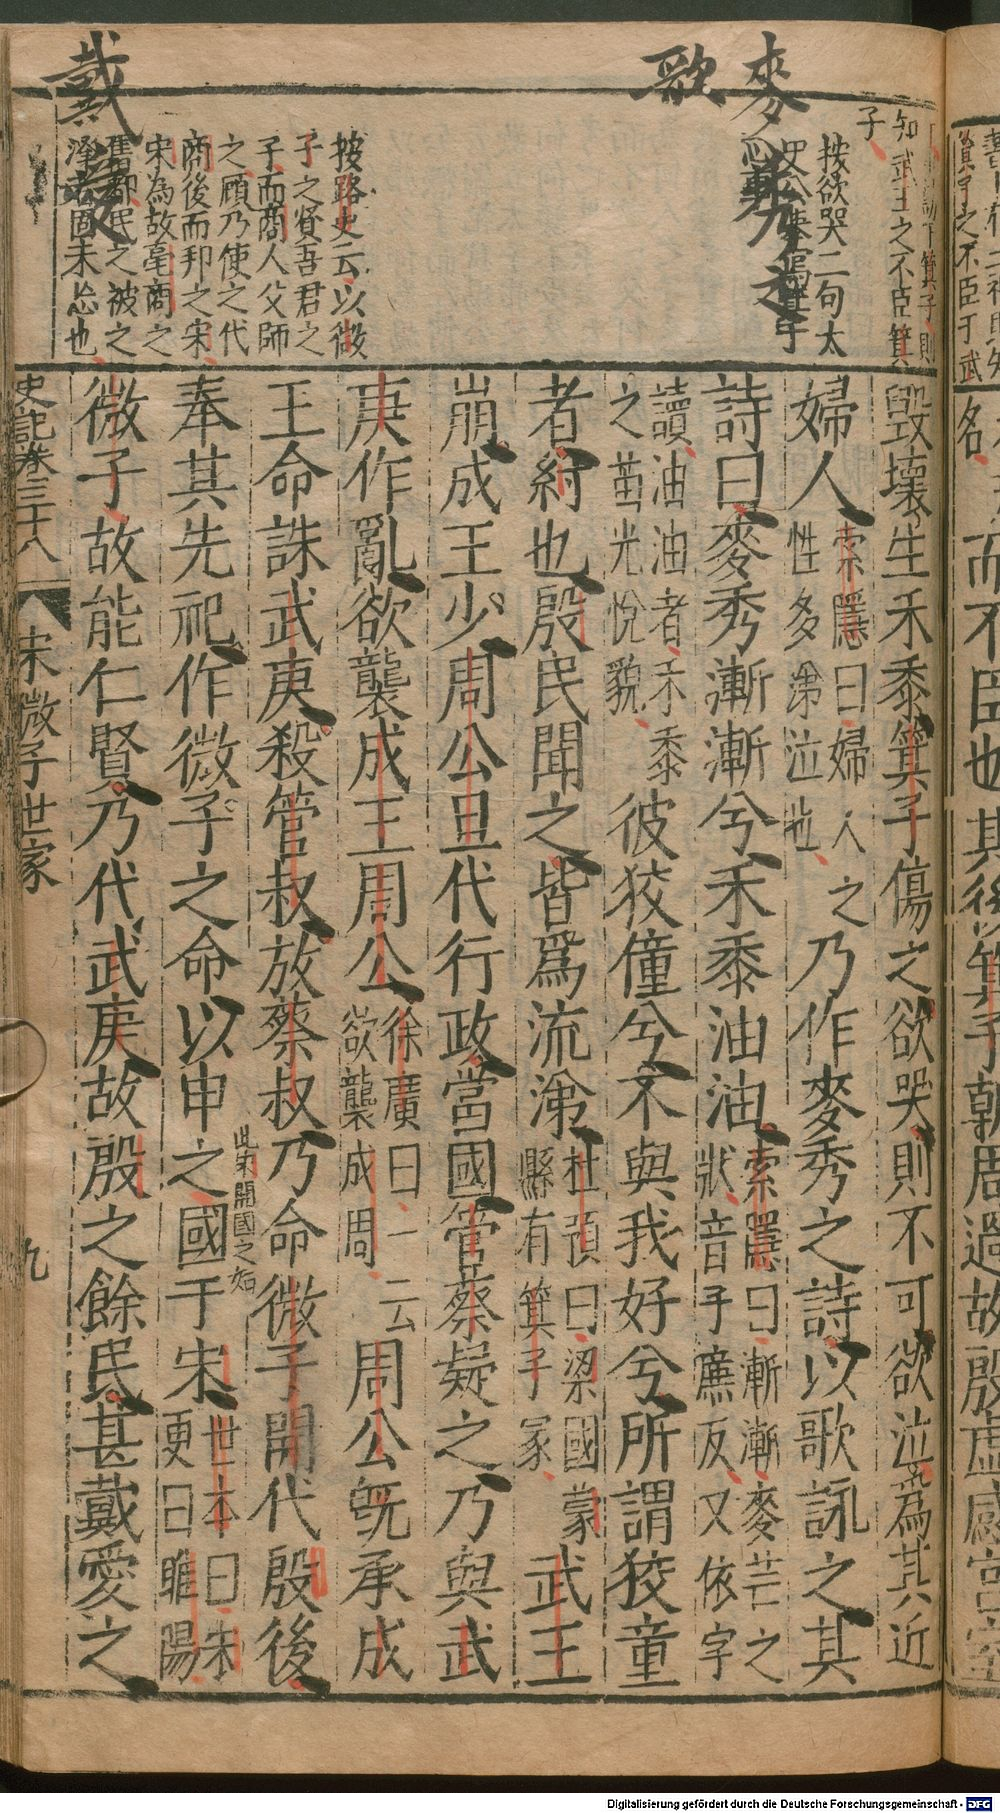 麥
歌
戴
知武王之不臣箕
子
按欲哭二句太
按路史云以微
子之賢吾君之
子而商人父師
之顧乃使之代
商後而邦之宋
宋為故亳商之
舊都民之被之
澤者固未忘也
毀壞生禾黍箕子傷之欲哭則不可欲泣為其近
婦人索隱曰婦人之
性多涕泣也乃作麥秀之詩以歌詠之其
詩曰麥秀漸漸兮禾黍油油索隱曰漸漸麥芒之
狀音子廉反又依字
讀油油者禾黍
之苗光悅貌彼狡僮兮不與我好兮所謂狡童
者紂也殷民聞之皆為流涕杜預曰梁國蒙
縣有箕子冢武王
崩成王少周公旦代行政當國管蔡疑之乃與武
庚作亂欲襲成王周公徐廣曰一云
欲襲成周周公既承成
王命誅武庚殺管叔放蔡叔乃命微子開代殷後
此宋開國之始
奉其先祀作微子之命以申之國于宋世本曰宋
更曰睢陽
微子故能仁賢乃代武庚故殷之餘民甚戴愛之
史記卷三十八 宋微子世家 九
Digitalisierung gefördert durch die Deutsche Forschungsgemeinschaft - DFG